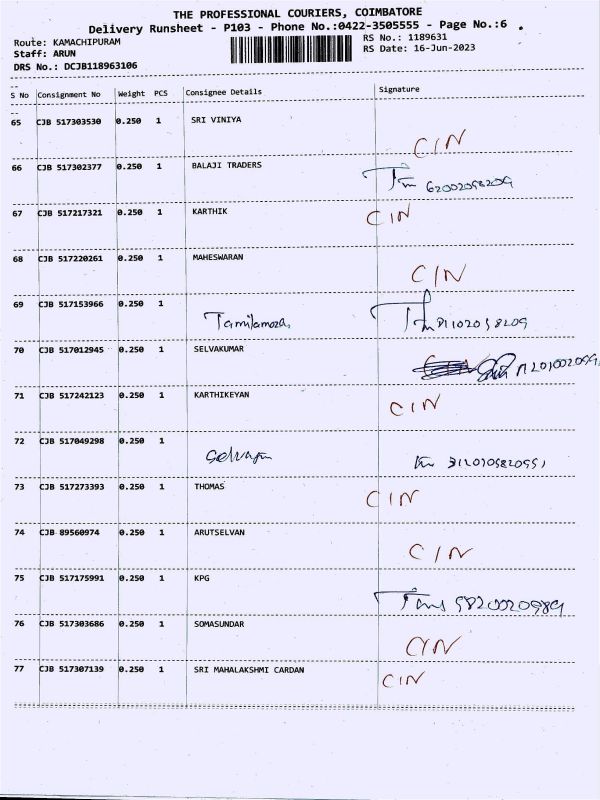 THE PROFESSIONAL COURIERS, COIMBATORE
Delivery Runsheet - P103 - Phone No.:0422-3505555 - Page No.:6
Route: KAMACHIPURAM RS No.: 1189631
Staff: ARUN RS Date: 16-Jun-2023
DRS No.: DCJB118963106
S No Consignment No Weight PCS Consignee Details Signature
65 CJB 517303530 0.250 1 SRI VINIYA
CIN
66 CJB 517302377 0.250 1 BALAJI TRADERS
67 CJB 517217321 0.250 1 KARTHIK CIN
68 CJB 517220261 0.250 1 MAHESWARAN
CIN
69 CJB 517153966 0.250 1
70 CJB 517012945 0.250 1 SELVAKUMAR
71 CJB 517242123 0.250 1 KARTHIKEYAN CIN
72 CJB 517049298 0.250 1
73 CJB 517273393 0.250 1 THOMAS CIN
74 CJB 89560974 0.250 1 ARUTSELVAN
CIN
75 CJB 517175991 0.250 1 KPG
76 CJB 517303686 0.250 1 SOMASUNDAR
CIN
77 CJB 517307139 0.250 1 SRI MAHALAKSHMI CARDAN CIN